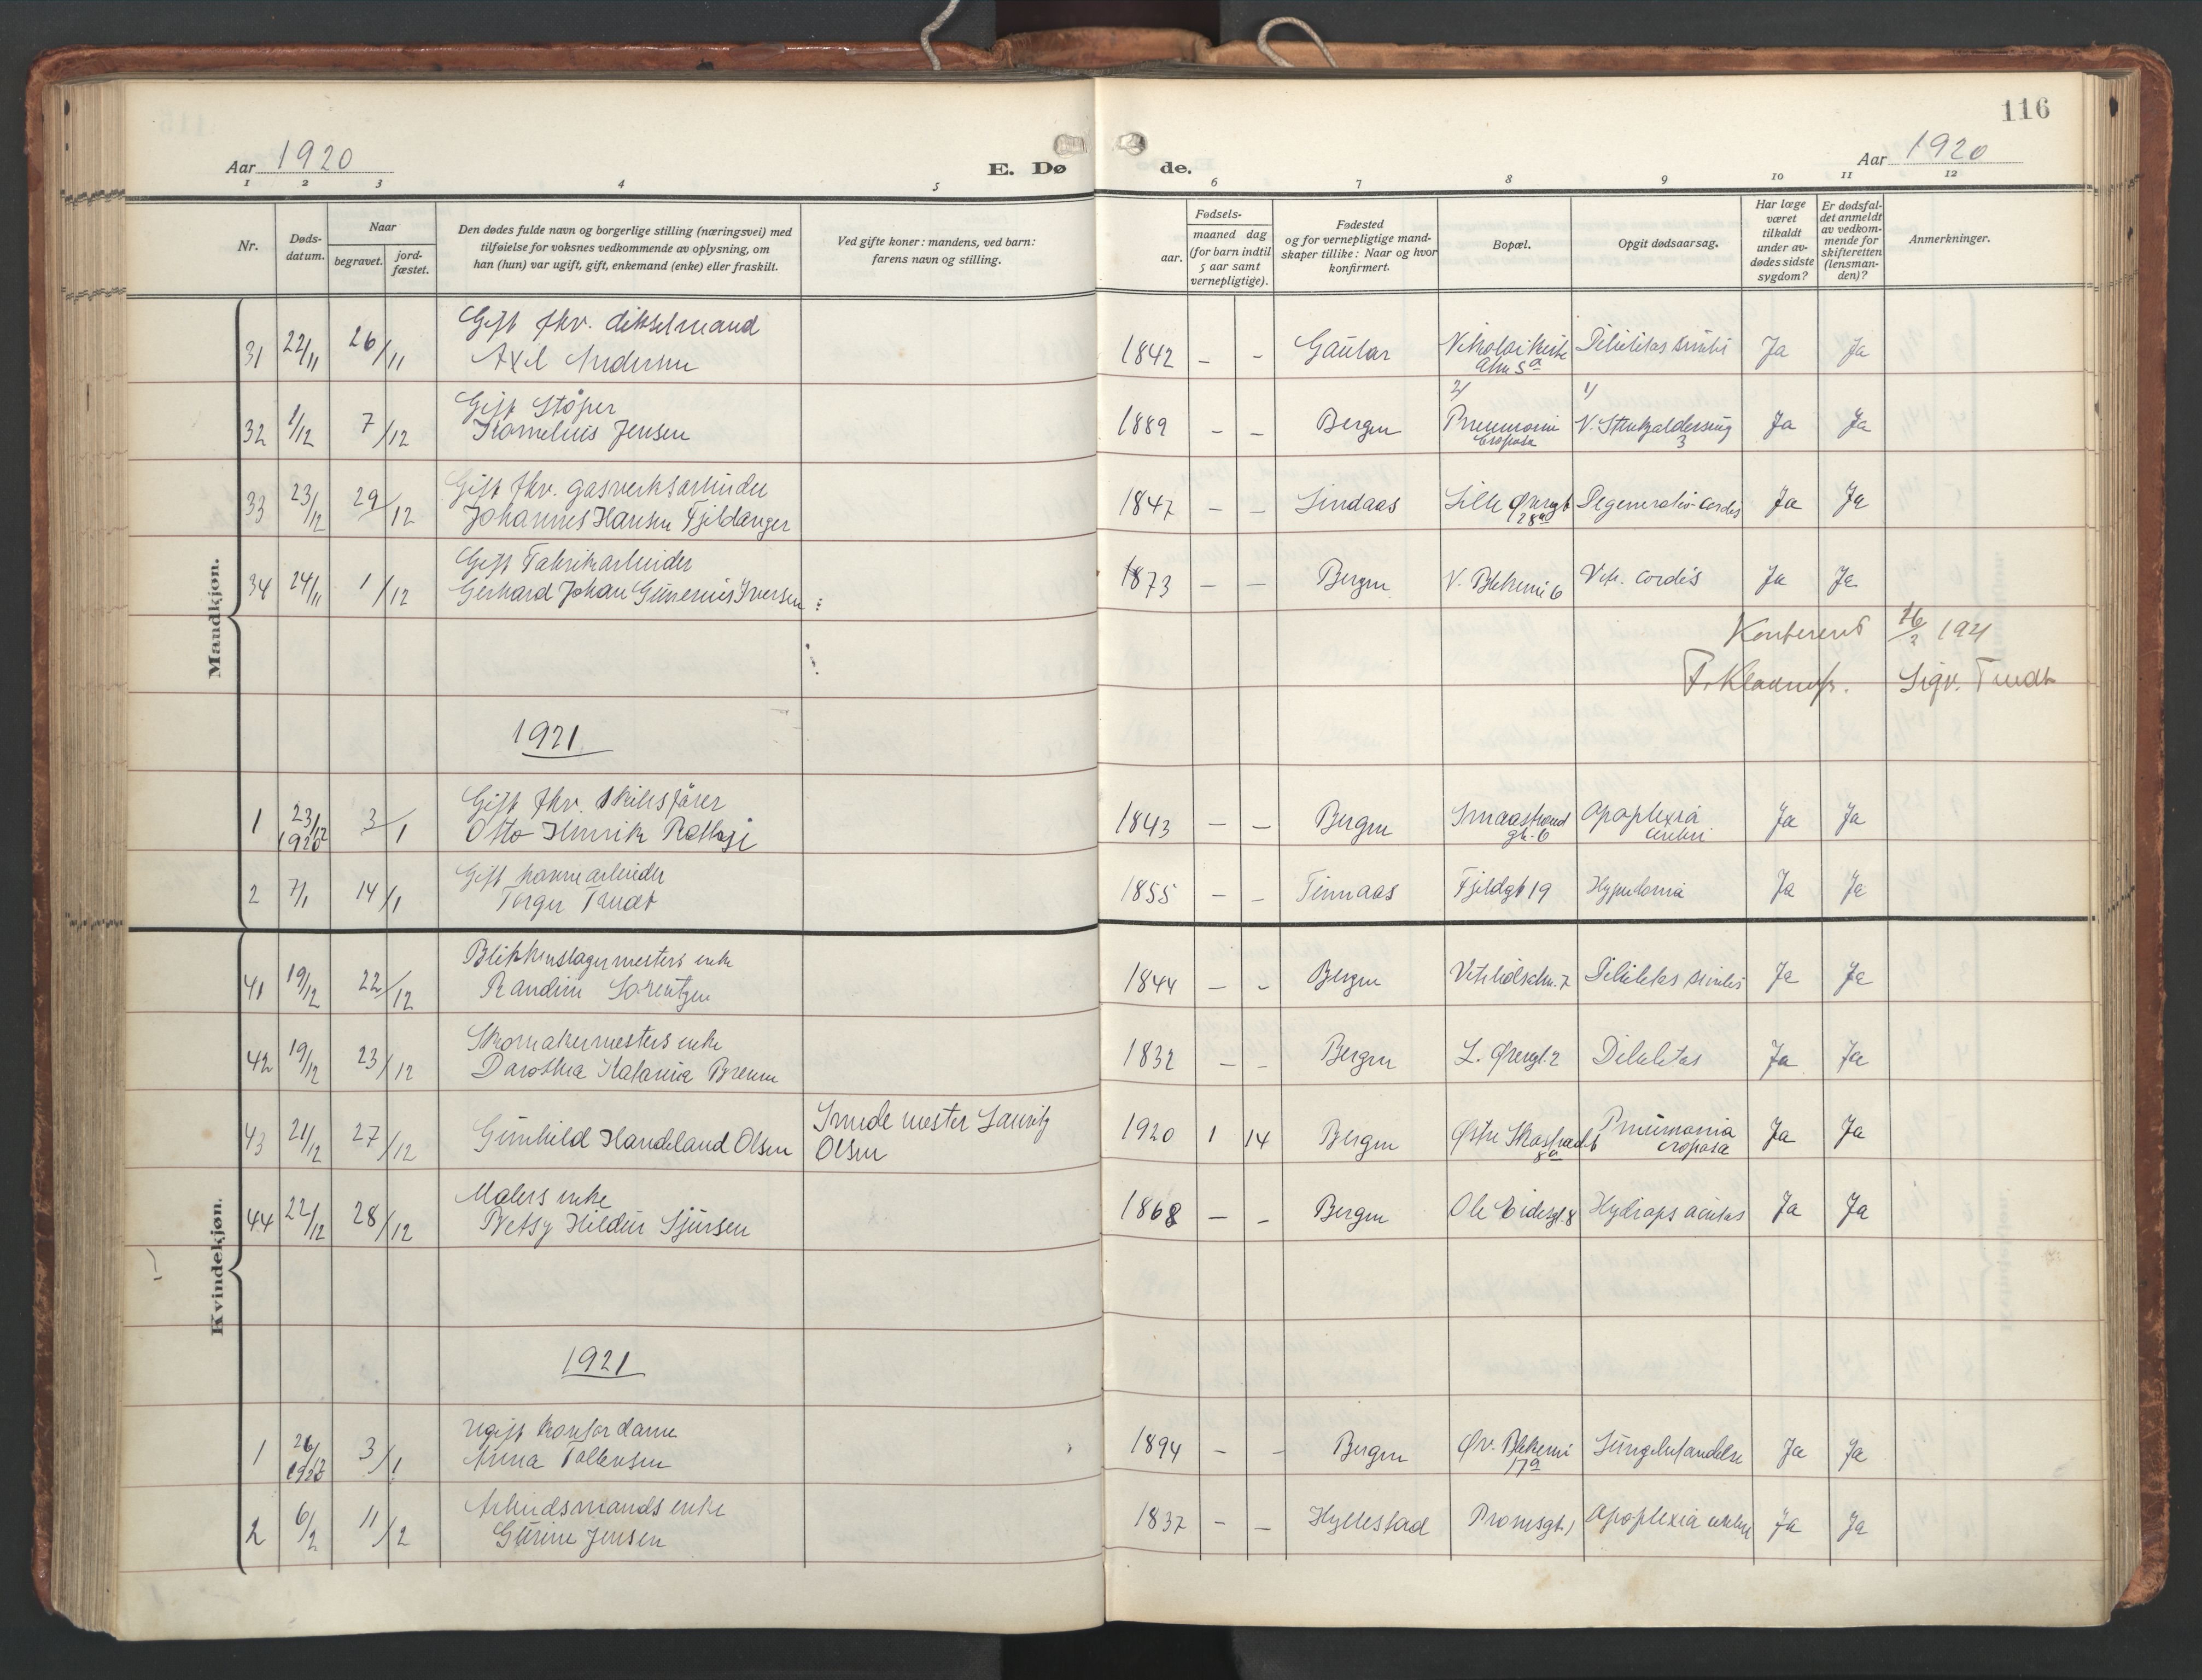 116
Aar 1920
E. Dø
de.
Aar 1920
1 2 3 4 5 6 7 8 9 10 11 12
Nr.
Døds-
datum.
Naar
begravet.
jord-
fæstet.
Den dødes fulde navn og borgerlige stilling (næringsvei) med
tilføielse for voksnes vedkommende av oplysning, om
han (hun) var ugift, gift, enkemand (enke) eller fraskilt.
Ved gifte koner: mandens, ved barn:
farens navn og stilling.
Fødsels-
aar.
maaned dag
(for barn indtil
5 aar samt
vernepligtige).
Fødested
og for vernepligtige mand-
skaper tillike: Naar og hvor
konfirmert.
Bopæl.
Opgit dødsaarsag.
Har læge
været
tilkaldt
under av-
dødes sidste
sygdom?
Er dødsfal-
det anmeldt
av vedkom-
mende for
skifteretten
(lensman-
den)?
Anmerkninger.
Mandkjøn.
Gift fhv.
31 22/11 26/11 Axel Andersen 1842 – – Gaular Nikolaikirke Debilitas senilis Ja Ja
alm 5a
Gift Støper 2/ 1/
32 1/12 7/12 Kornelius Jensen 1889 – – Bergen Pneumoni V. Strutzaldersmug Ja Ja
croposa 3
Gift fhv. gasverksarbeider
33 23/12 29/12 Johannes Hansen Fjeldanger 1847 – – Lindaas Lille Øvregt Degeneratio cordis Ja Ja
28a
Gift Fabrikarbeider
34 24/11 1/12 Gerhard Johan Gunerius Iversen 1873 – – Bergen V. Blekevei 6 Vit. cordis Ja Ja
Konferert 16/2 1921
Sigv. Trudt
1921
Gift fhv. skibsfører
1 23/12 1920 3/1 Otto Henrik 1843 – – Bergen Smaastrand Apoplexia Ja Ja
gt. 6 cerebri
Gift havnearbeider
2 7/1 14/1 Torger Trudt 1855 – – Finnaas Fjeldgt 19 Ja Ja
Kvindekjøn.
Blikkenslagermesters enke
41 19/12 22/12 Randine Sørentzen 1844 – – Bergen Vetrlidsalm. 7 Debilitas senilis Ja Ja
Skomakermesters enke
42 19/12 23/12 Dorothea Katarina 1832 – – Bergen L. Øvregt. 2 Debilitas Ja Ja
Smedemester Lauritz
43 21/12 27/12 Gunhild Handeland Olsen Olsen 1920 1 14 Bergen Østre Skostrædet Pneumonia Ja Ja
8a croposa
Malers enke
44 22/12 28/12 Betsy Hildur Sjursen 1868 – – Bergen Ole Eidesgt. 8 Hydrops acutus Ja Ja
1921
Ugift kontordame
1 26/12 1920 3/1 Anna Tollevsen 1894 – – Bergen Øv. Blekevei Lungebetændelse Ja Ja
17a
Arbeidsmands enke
2 6/2 11/2 Gurine Jensen 1837 – – Hyllestad Promsgt. 1 Apoplexia cerebri Ja Ja